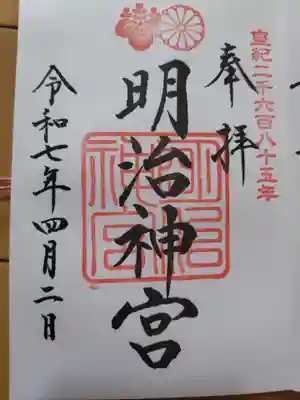 皇紀二千六百八十五年
奉拝
明治神宮
明治神宮
令和七年四月二日